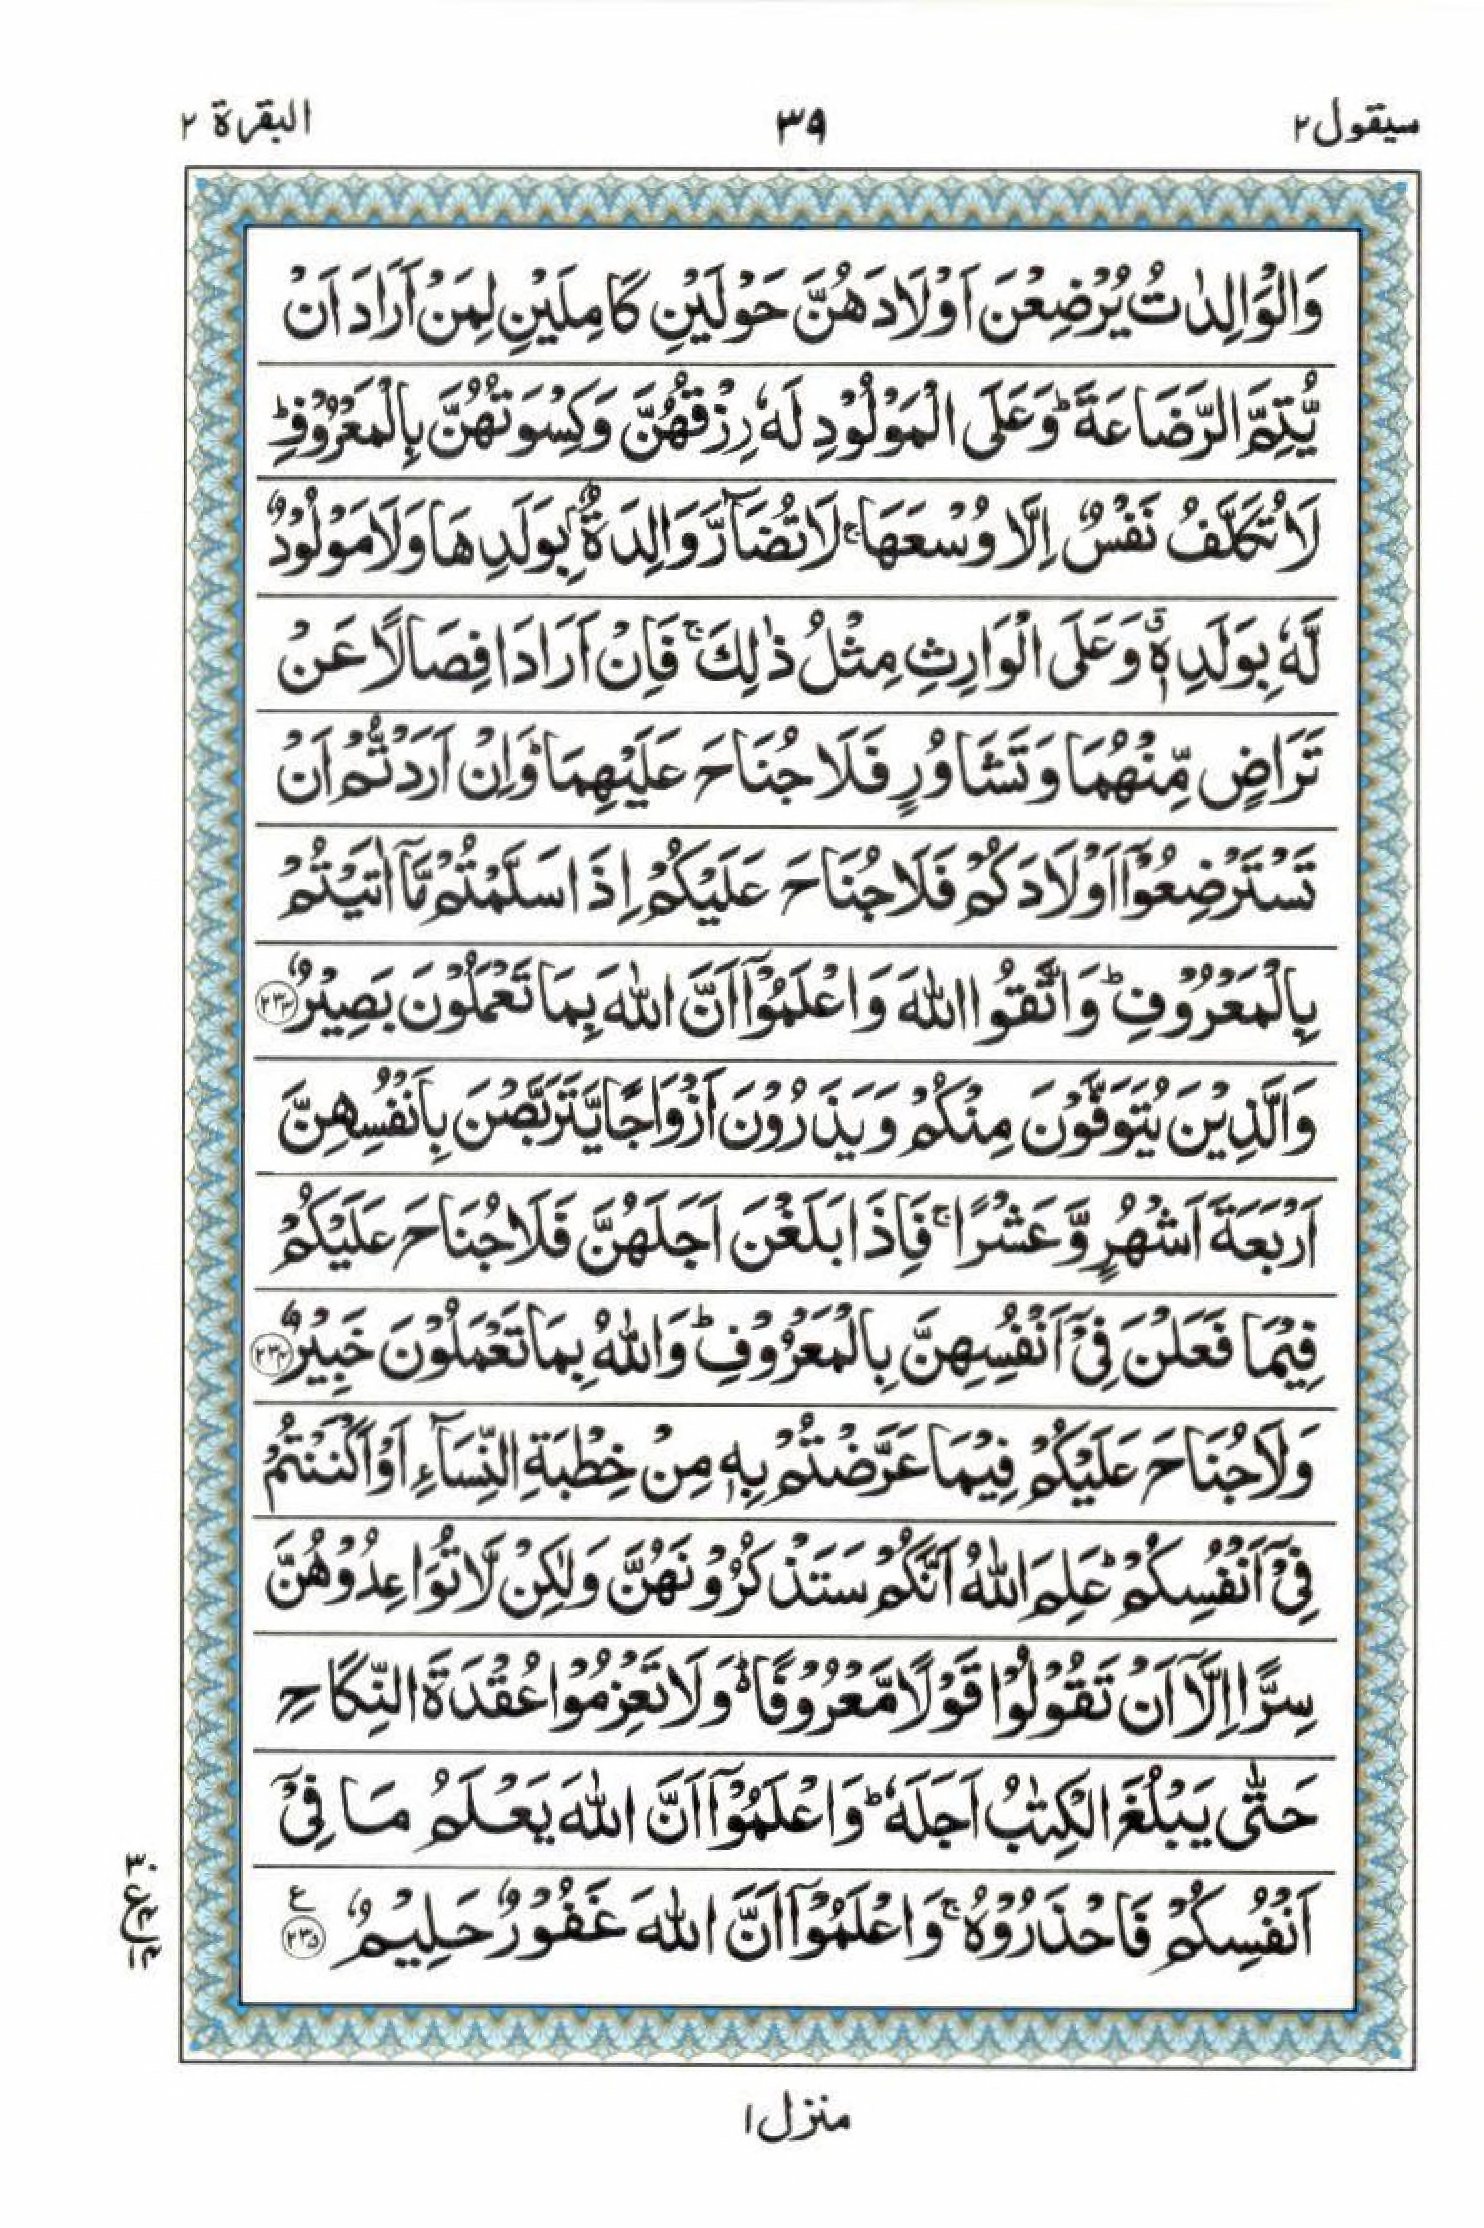 سيقول ٢
٣٩
البقرة ٢
وَالْوَالِدٰتُ يُرْضِعْنَ اَوْلَادَهُنَّ حَوْلَيْنِ كَامِلَيْنِ لِمَنْ اَرَادَ اَنْ
يُّتِمَّ الرَّضَاعَةَ ؕ وَعَلَى الْمَوْلُوْدِ لَهٗ رِزْقُهُنَّ وَكِسْوَتُهُنَّ بِالْمَعْرُوْفِ ؕ
لَا تُكَلَّفُ نَفْسٌ اِلَّا وُسْعَهَا ۚ لَا تُضَآرَّ وَالِدَةٌۢ بِوَلَدِهَا وَلَا مَوْلُوْدٌ
لَّهٗ بِوَلَدِهٖ ۗ وَعَلَى الْوَارِثِ مِثْلُ ذٰلِكَ ۚ فَاِنْ اَرَادَا فِصَالًا عَنْ
تَرَاضٍ مِّنْهُمَا وَتَشَاوُرٍ فَلَا جُنَاحَ عَلَيْهِمَا ؕ وَاِنْ اَرَدْتُّمْ اَنْ
تَسْتَرْضِعُوْۤا اَوْلَادَكُمْ فَلَا جُنَاحَ عَلَيْكُمْ اِذَا سَلَّمْتُمْ مَّاۤ اٰتَيْتُمْ
بِالْمَعْرُوْفِ ؕ وَاتَّقُوا اللّٰهَ وَاعْلَمُوْۤا اَنَّ اللّٰهَ بِمَا تَعْمَلُوْنَ بَصِيْرٌ ﴿٢٣٣﴾
وَالَّذِيْنَ يُتَوَفَّوْنَ مِنْكُمْ وَيَذَرُوْنَ اَزْوَاجًا يَّتَرَبَّصْنَ بِاَنْفُسِهِنَّ
اَرْبَعَةَ اَشْهُرٍ وَّعَشْرًا ۚ فَاِذَا بَلَغْنَ اَجَلَهُنَّ فَلَا جُنَاحَ عَلَيْكُمْ
فِيْمَا فَعَلْنَ فِيْۤ اَنْفُسِهِنَّ بِالْمَعْرُوْفِ ؕ وَاللّٰهُ بِمَا تَعْمَلُوْنَ خَبِيْرٌ ﴿٢٣٤﴾
وَلَا جُنَاحَ عَلَيْكُمْ فِيْمَا عَرَّضْتُمْ بِهٖ مِنْ خِطْبَةِ النِّسَآءِ اَوْ اَكْنَنْتُمْ
فِيْۤ اَنْفُسِكُمْ ؕ عَلِمَ اللّٰهُ اَنَّكُمْ سَتَذْكُرُوْنَهُنَّ وَلٰكِنْ لَّا تُوَاعِدُوْهُنَّ
سِرًّا اِلَّاۤ اَنْ تَقُوْلُوْا قَوْلًا مَّعْرُوْفًا ؕ وَلَا تَعْزِمُوْا عُقْدَةَ النِّكَاحِ
حَتّٰى يَبْلُغَ الْكِتٰبُ اَجَلَهٗ ؕ وَاعْلَمُوْۤا اَنَّ اللّٰهَ يَعْلَمُ مَا فِيْۤ
اَنْفُسِكُمْ فَاحْذَرُوْهُ ۚ وَاعْلَمُوْۤا اَنَّ اللّٰهَ غَفُوْرٌ حَلِيْمٌ ﴿٢٣٥﴾ ع
٣٠
ع
١٤
منزل ١